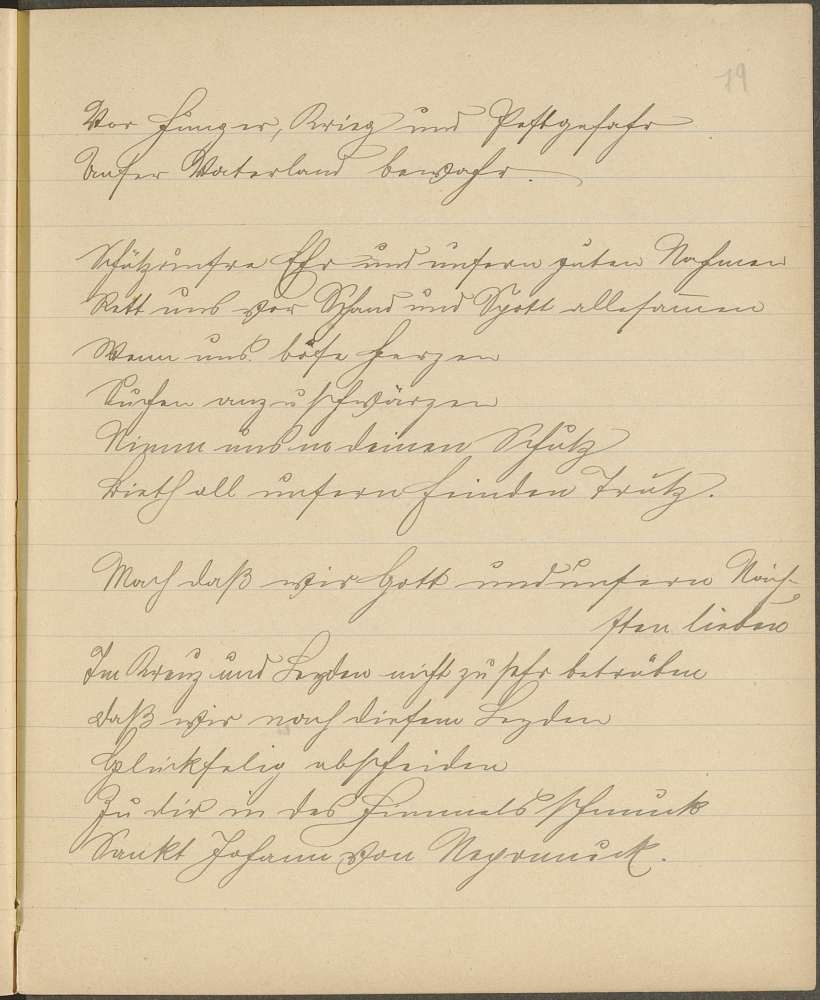 79
Vor Hunger, Krieg und Pestgefahr
Unser Vaterland bewahr.
Schütz unsre Ehr und unsern guten Nahmen
Rett uns vor Schand und Spott allesam̅en
Wenn uns böse Herzen
Suchen anzuschwärzen
Nimm uns in deinen Schutz
Bieth all unsern Feinden Trutz.
Mach daß wir Gott und unsern Näch-
sten lieben
Im Kreuz und Leyden nicht zu sehr betrüben
daß wir nach diesem Leyden
Glückselig abscheiden
Zu dir in des Himmels schmuck
Sankt Johann von Nepomuck.